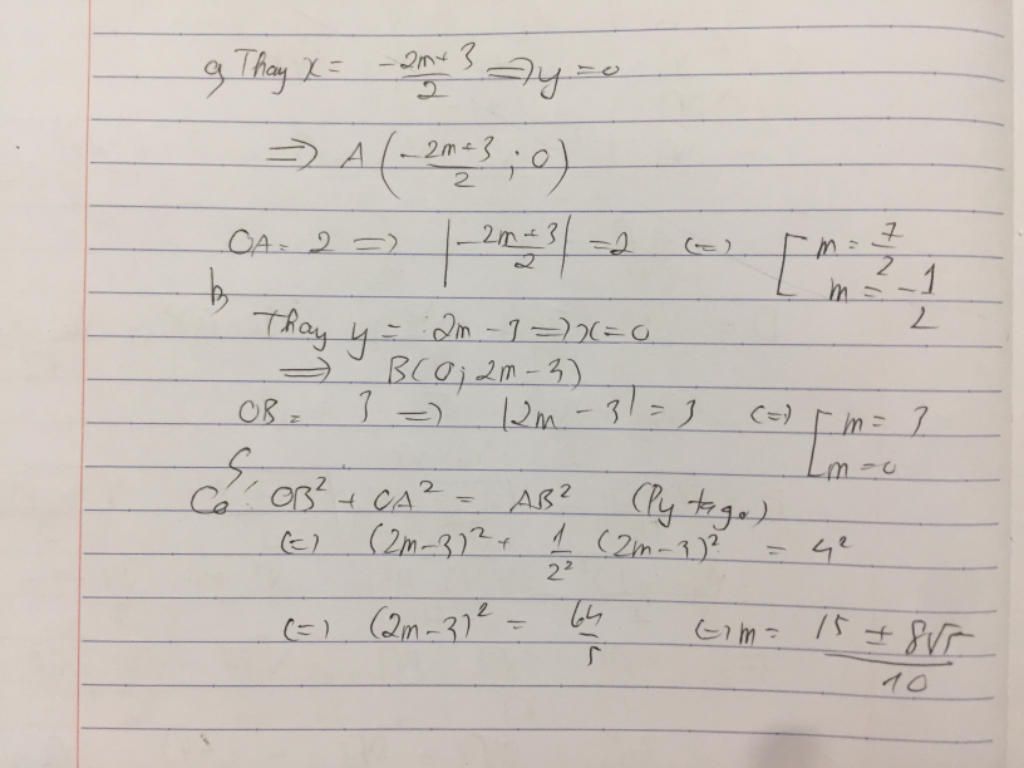 a, Thay x = -2m+3/2 => y = 0
=> A (-2m+3/2 ; 0)
OA = 2 => |-2m+3/2| = 2 <=> [ m = 7/2
m = -1/2
b,
Thay y = 2m - 3 => x = 0
=> B(0; 2m - 3)
OB = 3 => |2m - 3| = 3 <=> [ m = 3
m = 0
c,
Có: OB² + OA² = AB² (Py tago)
<=> (2m-3)² + 1/2² (2m-3)² = 4²
<=> (2m-3)² = 64/5 <=> m = 15 ± 8√5/10